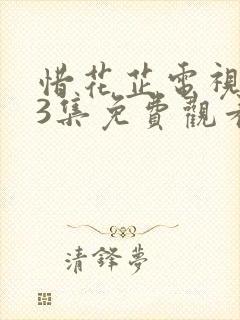 惜花芷電視
3集免費觀看
清鋒夢